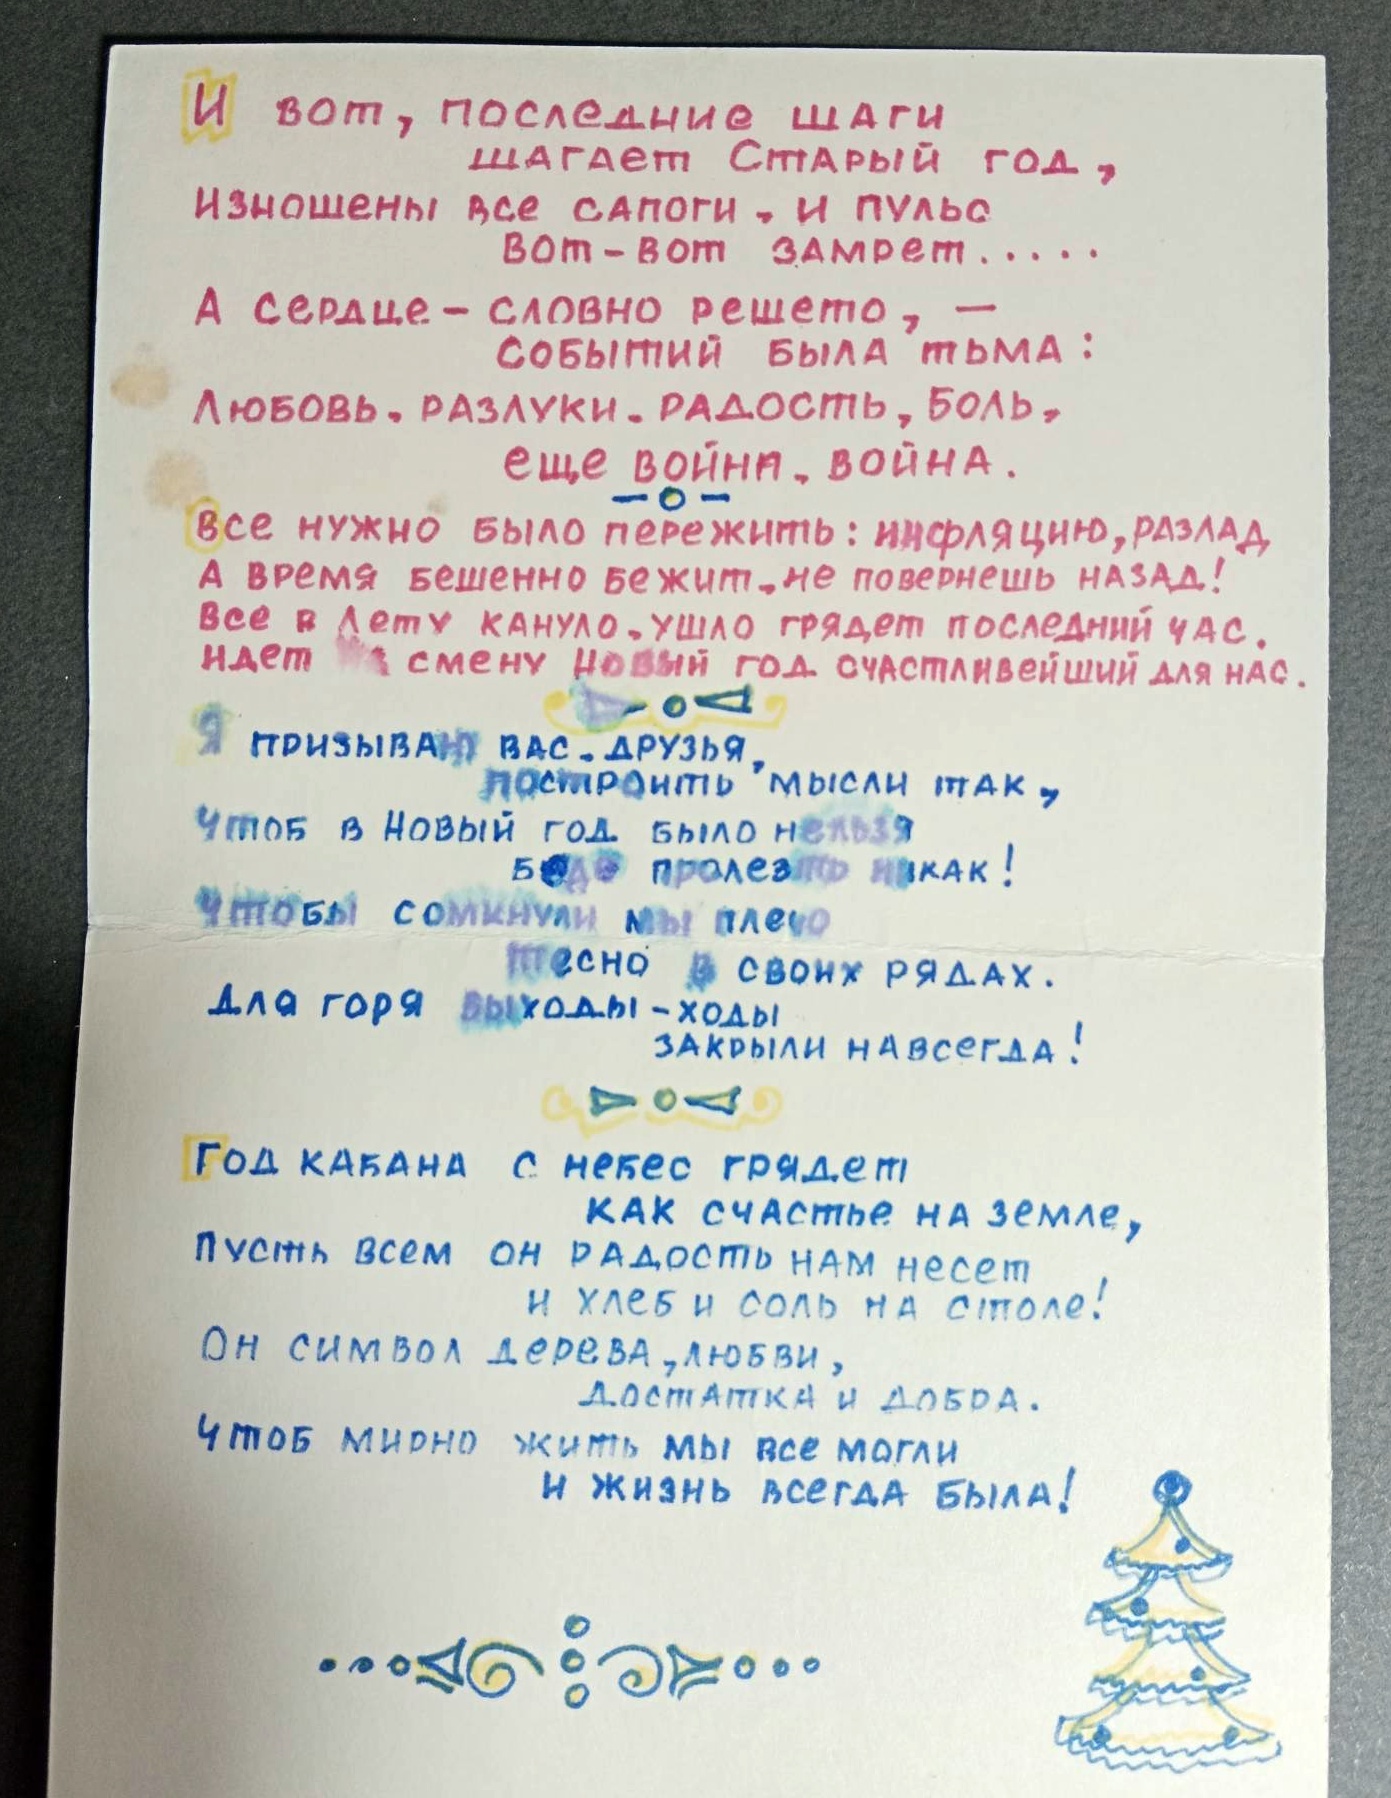 И вот, последние шаги
шагает Старый год,
Изношены все сапоги, и пульс
вот-вот замрет.....
А сердце - словно решето, -
событий была тьма:
Любовь, разлуки, радость, боль,
еще война, война.
Все нужно было пережить: инфляцию, разлад,
А время бешенно бежит, не повернешь назад!
Все в Лету кануло, ушло грядет последний час.
Идет на смену Новый год счастливейший для нас.
Я призываю вас, друзья,
построить мысли так,
Чтоб в Новый год было нельзя
беде пролезть никак!
Чтобы сомкнули мы плечо
тесно в своих рядах.
Для горя выходы-ходы
закрыли навсегда!
Год кабана с небес грядет
как счастье на земле,
Пусть всем он радость нам несет
и хлеб и соль на столе!
Он символ дерева, любви,
достатка и добра.
Чтоб мирно жить мы все могли
и жизнь всегда была!